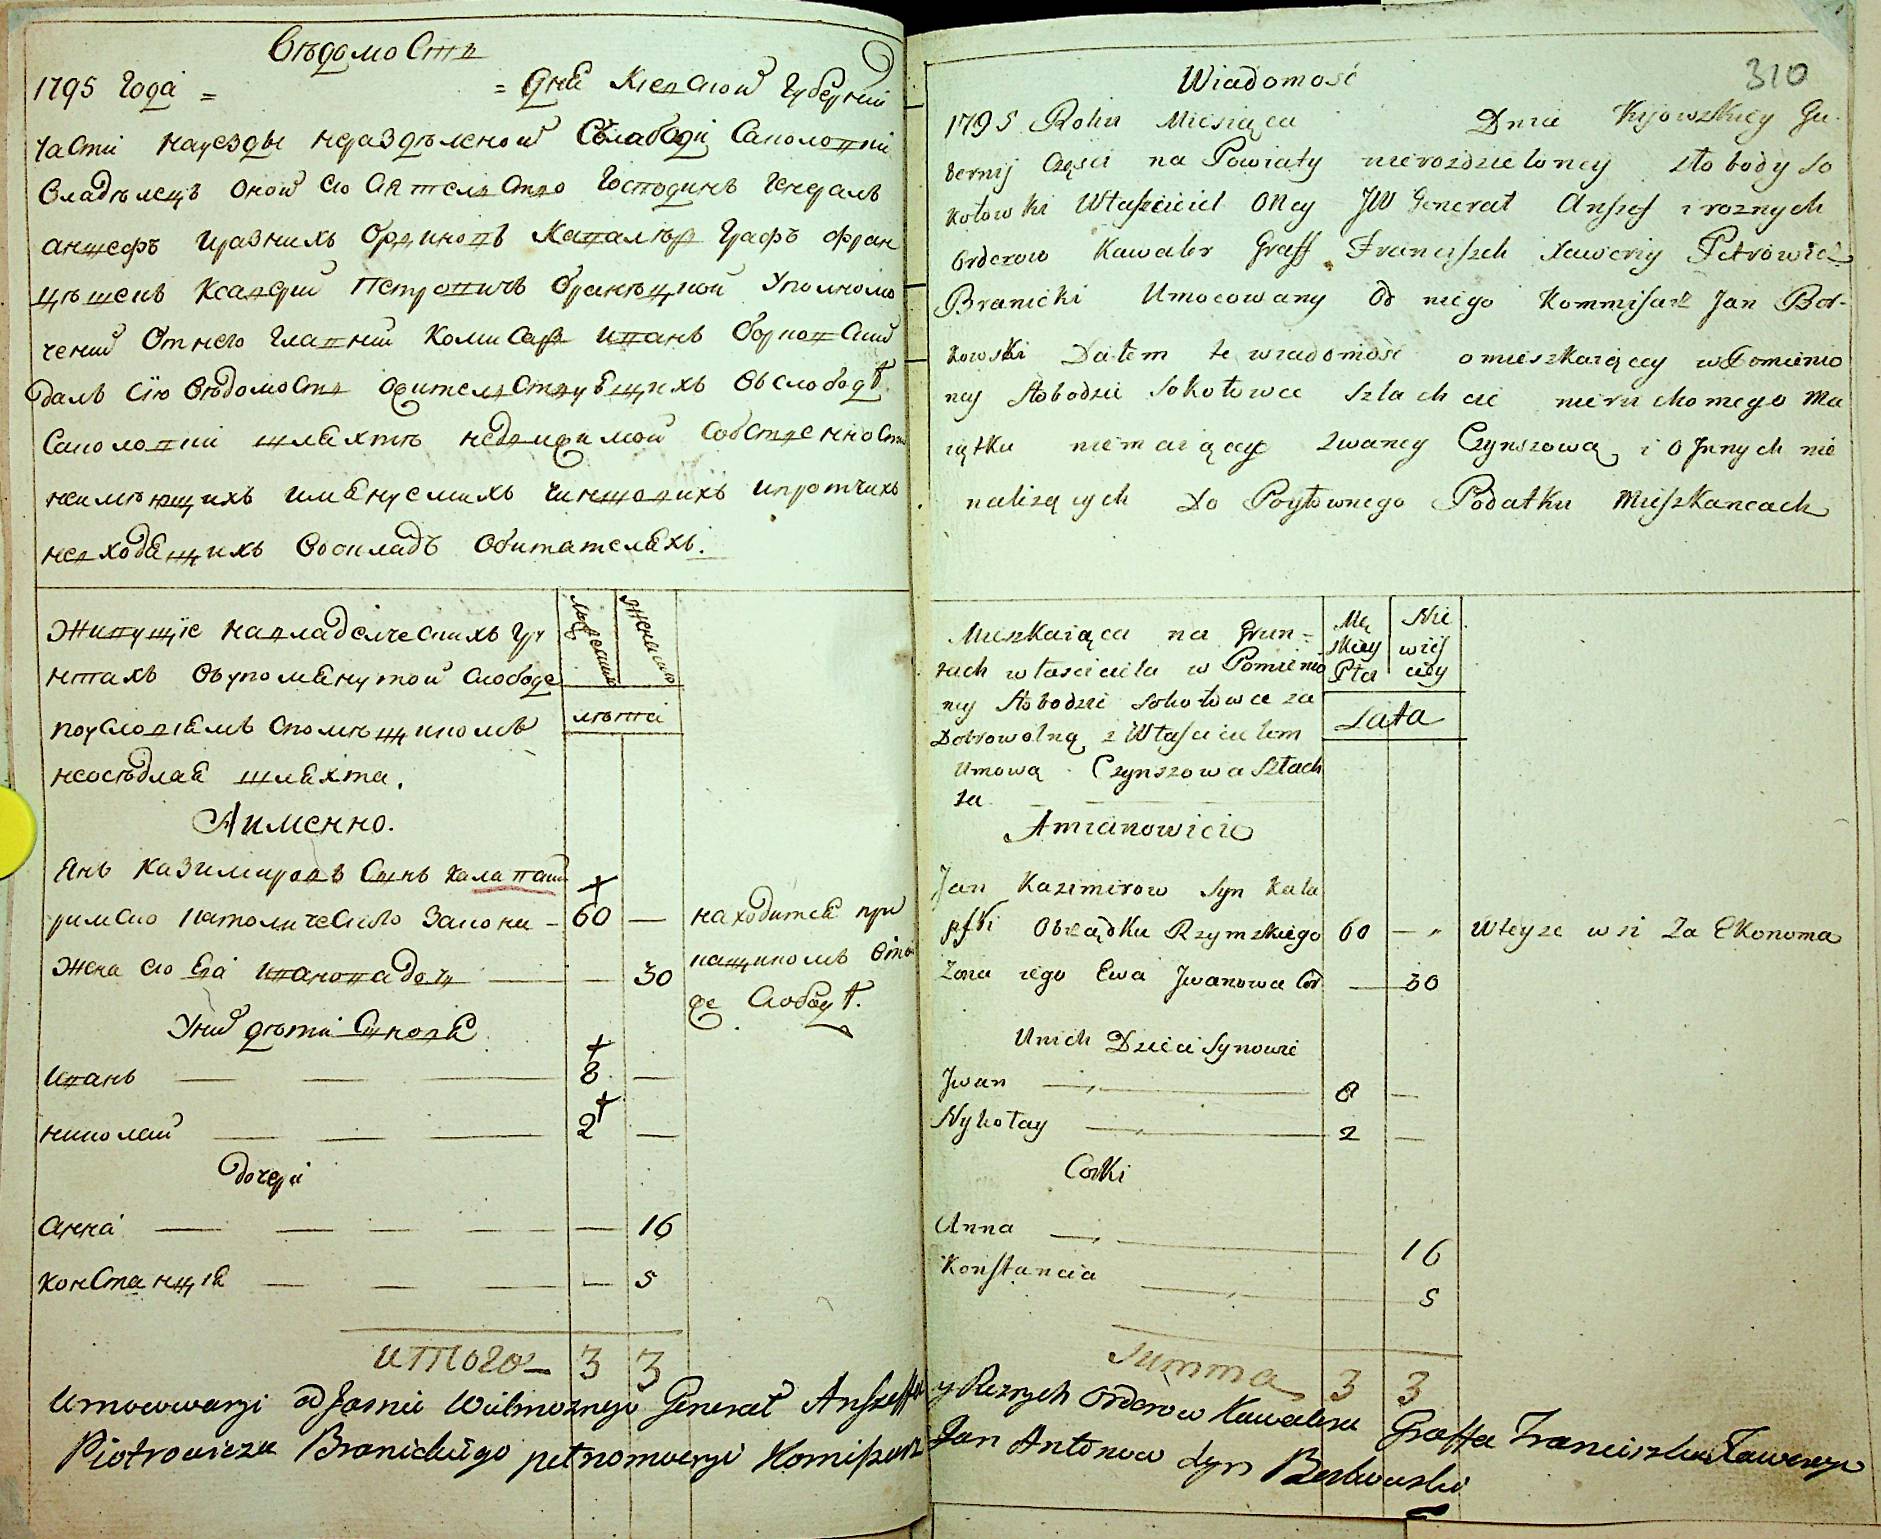 Вѣдомость
1795 Года = = Дня Киевской Губерній
Части науезды нераздѣленой Слабоди Саколовки
Владѣлецъ оной Сіятельство Господинъ Генералъ
аншефъ иразнихъ Ординовъ Кавалѣръ Графъ Фран
цѣшекъ Ксаверий Петровичъ Бранѣцкой Уполномо
ченій Отнего Главній Комисаръ иванъ Борковский
далъ Сію вѣдомость обителствующихъ Въслободѣ
Саколовки шляхтѣ недвижимой собственност
неимѣющихъ именуемихъ чиншовихъ ипротчихъ
невходящихъ Вокладъ Обитателяхъ.
Живущіе навладелческихъ гру
нтахъ Въупомянутой слободе
поусловіямъ спомѣщикомъ
неосѣдлая шляхта.
Аименно.
мужеска
женска
лѣта
Янъ Казимировъ Сынъ Калапский
римско католическаго Закона - 60 —
Жена его Ева иванова дочь — — 30
находится при
кащикомъ втой
де слободѣ.
Уних дѣти Сыновя
иванъ — — — 8 —
николай — — — 2 —
дочери
анна — — — — — 16
констанция — — — — 5
итого — 3 3
310
Wiadomość
1795 Roku Miesiąca Dnia Kijowskiey Gu-
bernij Części na Powiaty nierozdzieloney słobody So
kołowki Właściciel oney JW Generał Anszef i roznych
Orderow Kawaler Graff Franciszek Xawery Petrowicz
Branicki Umocowany Od niego Kommisarz Jan Bor-
kowski Dałem te wiadomość o mieszkaiącey w Pomienio
ney słobodzie Sokołowce szlachcie nieruchomego Ma
iątku niemaiącey zwaney Czynszową i o Jnnych nie
nalizących do Pogłownego Podatku Mieszkancach
Mieszkaiąca na Grun=
tach właściciela w Pomienio
ney słobodzie Sokołowce za
Dobrowolną z Właścicielem
Umową Czynszowa Szlach
ta
Mę
skiey
Płci
Nie
wieś
ciey
Lata
A mianowicie
Jan Kazimirow Syn Kała
pski Obrządku Rzymskiego 60 —
Zona iego Ewa Jwanowa Cór — 30
w teyze wsi Za Ekonoma
Unich Dzieci Synowie
Jwan — 8 —
Nykołay — 2 —
Corki
Anna — 16
Konstancia — 5
Summa 3 3
Umocowanyi od Jasnie Wielmoznego Generał Anszeffa y Roznych Orderow Kawalera Graffa Franciszka Xawerego
Piotrowicza Branickiego pełnomocnyi Komisarz Jan Antonow syn Borkowski